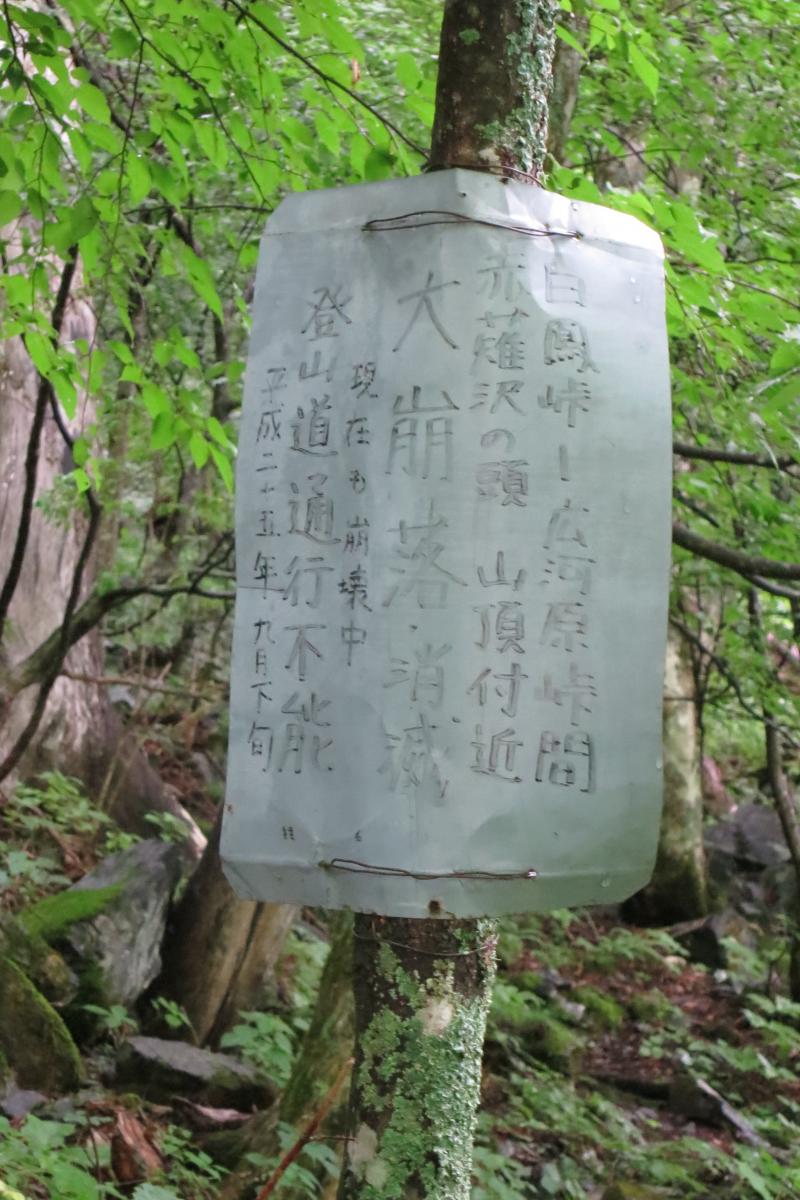 白鳳峠ー広河原峠間
赤薙沢の頭 山頂付近
大崩落・消滅
現在も崩壊中
登山道通行不能
平成二十五年九月下旬